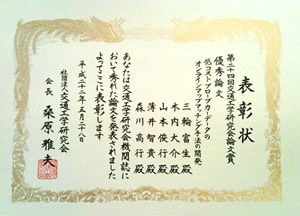 表彰状
第二十四回交通工学研究会論文賞
優秀論文
低コストプローブカーデータの
オンラインマップマッチング手法の開発
三輪富生殿
木内大介殿
山本俊行殿
薄井智貴殿
森川高行殿
あなたは交通工学研究会機関誌に
おいて秀れた論文を発表されました
よってここに表彰します
平成二十二年五月二十八日
社団法人交通工学研究会
会長 桑原雅夫